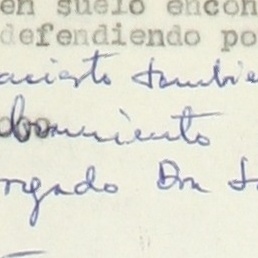 en suelo encon
defendiendo po
acierto tambie
miento
rgado Don